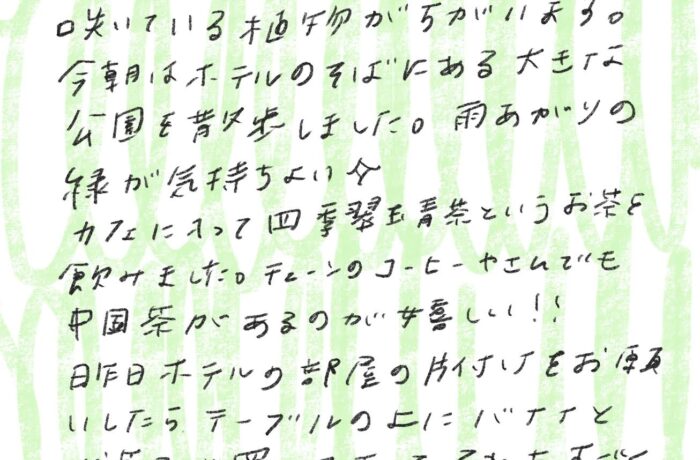 咲いている植物がちがいます。
今朝はホテルのそばにある大きな
公園を散歩しました。雨あがりの
緑が気持ちよい
カフェに入って四季翠玉青茶というお茶を
飲みました。チェーンのコーヒーやさんでも
中国茶があるのが嬉しい!!
昨日ホテルの部屋の片付けをお願
いしたらテーブルの上にバナナと